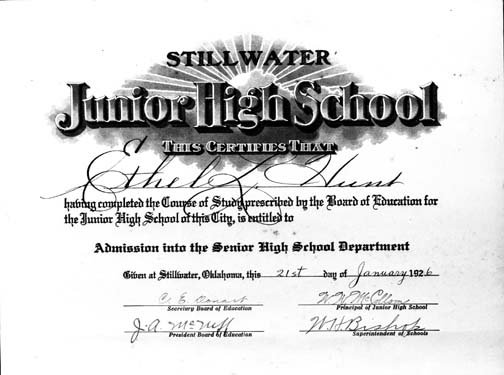 STILLWATER
Junior High School
THIS CERTIFIES THAT
Ethel L. Hunt
having completed the Course of Study prescribed by the Board of Education for
the Junior High School of this City, is entitled to
Admission into the Senior High School Department
Given at Stillwater, Oklahoma, this 21st day of January 1926
C. E. Donart
Secretary Board of Education
Principal of Junior High School
J. A. McNeff
President Board of Education
W H Bishop
Superintendent of Schools